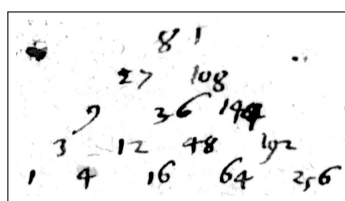 81
27 108
9 36 144
3 12 48 192
1 4 16 64 256